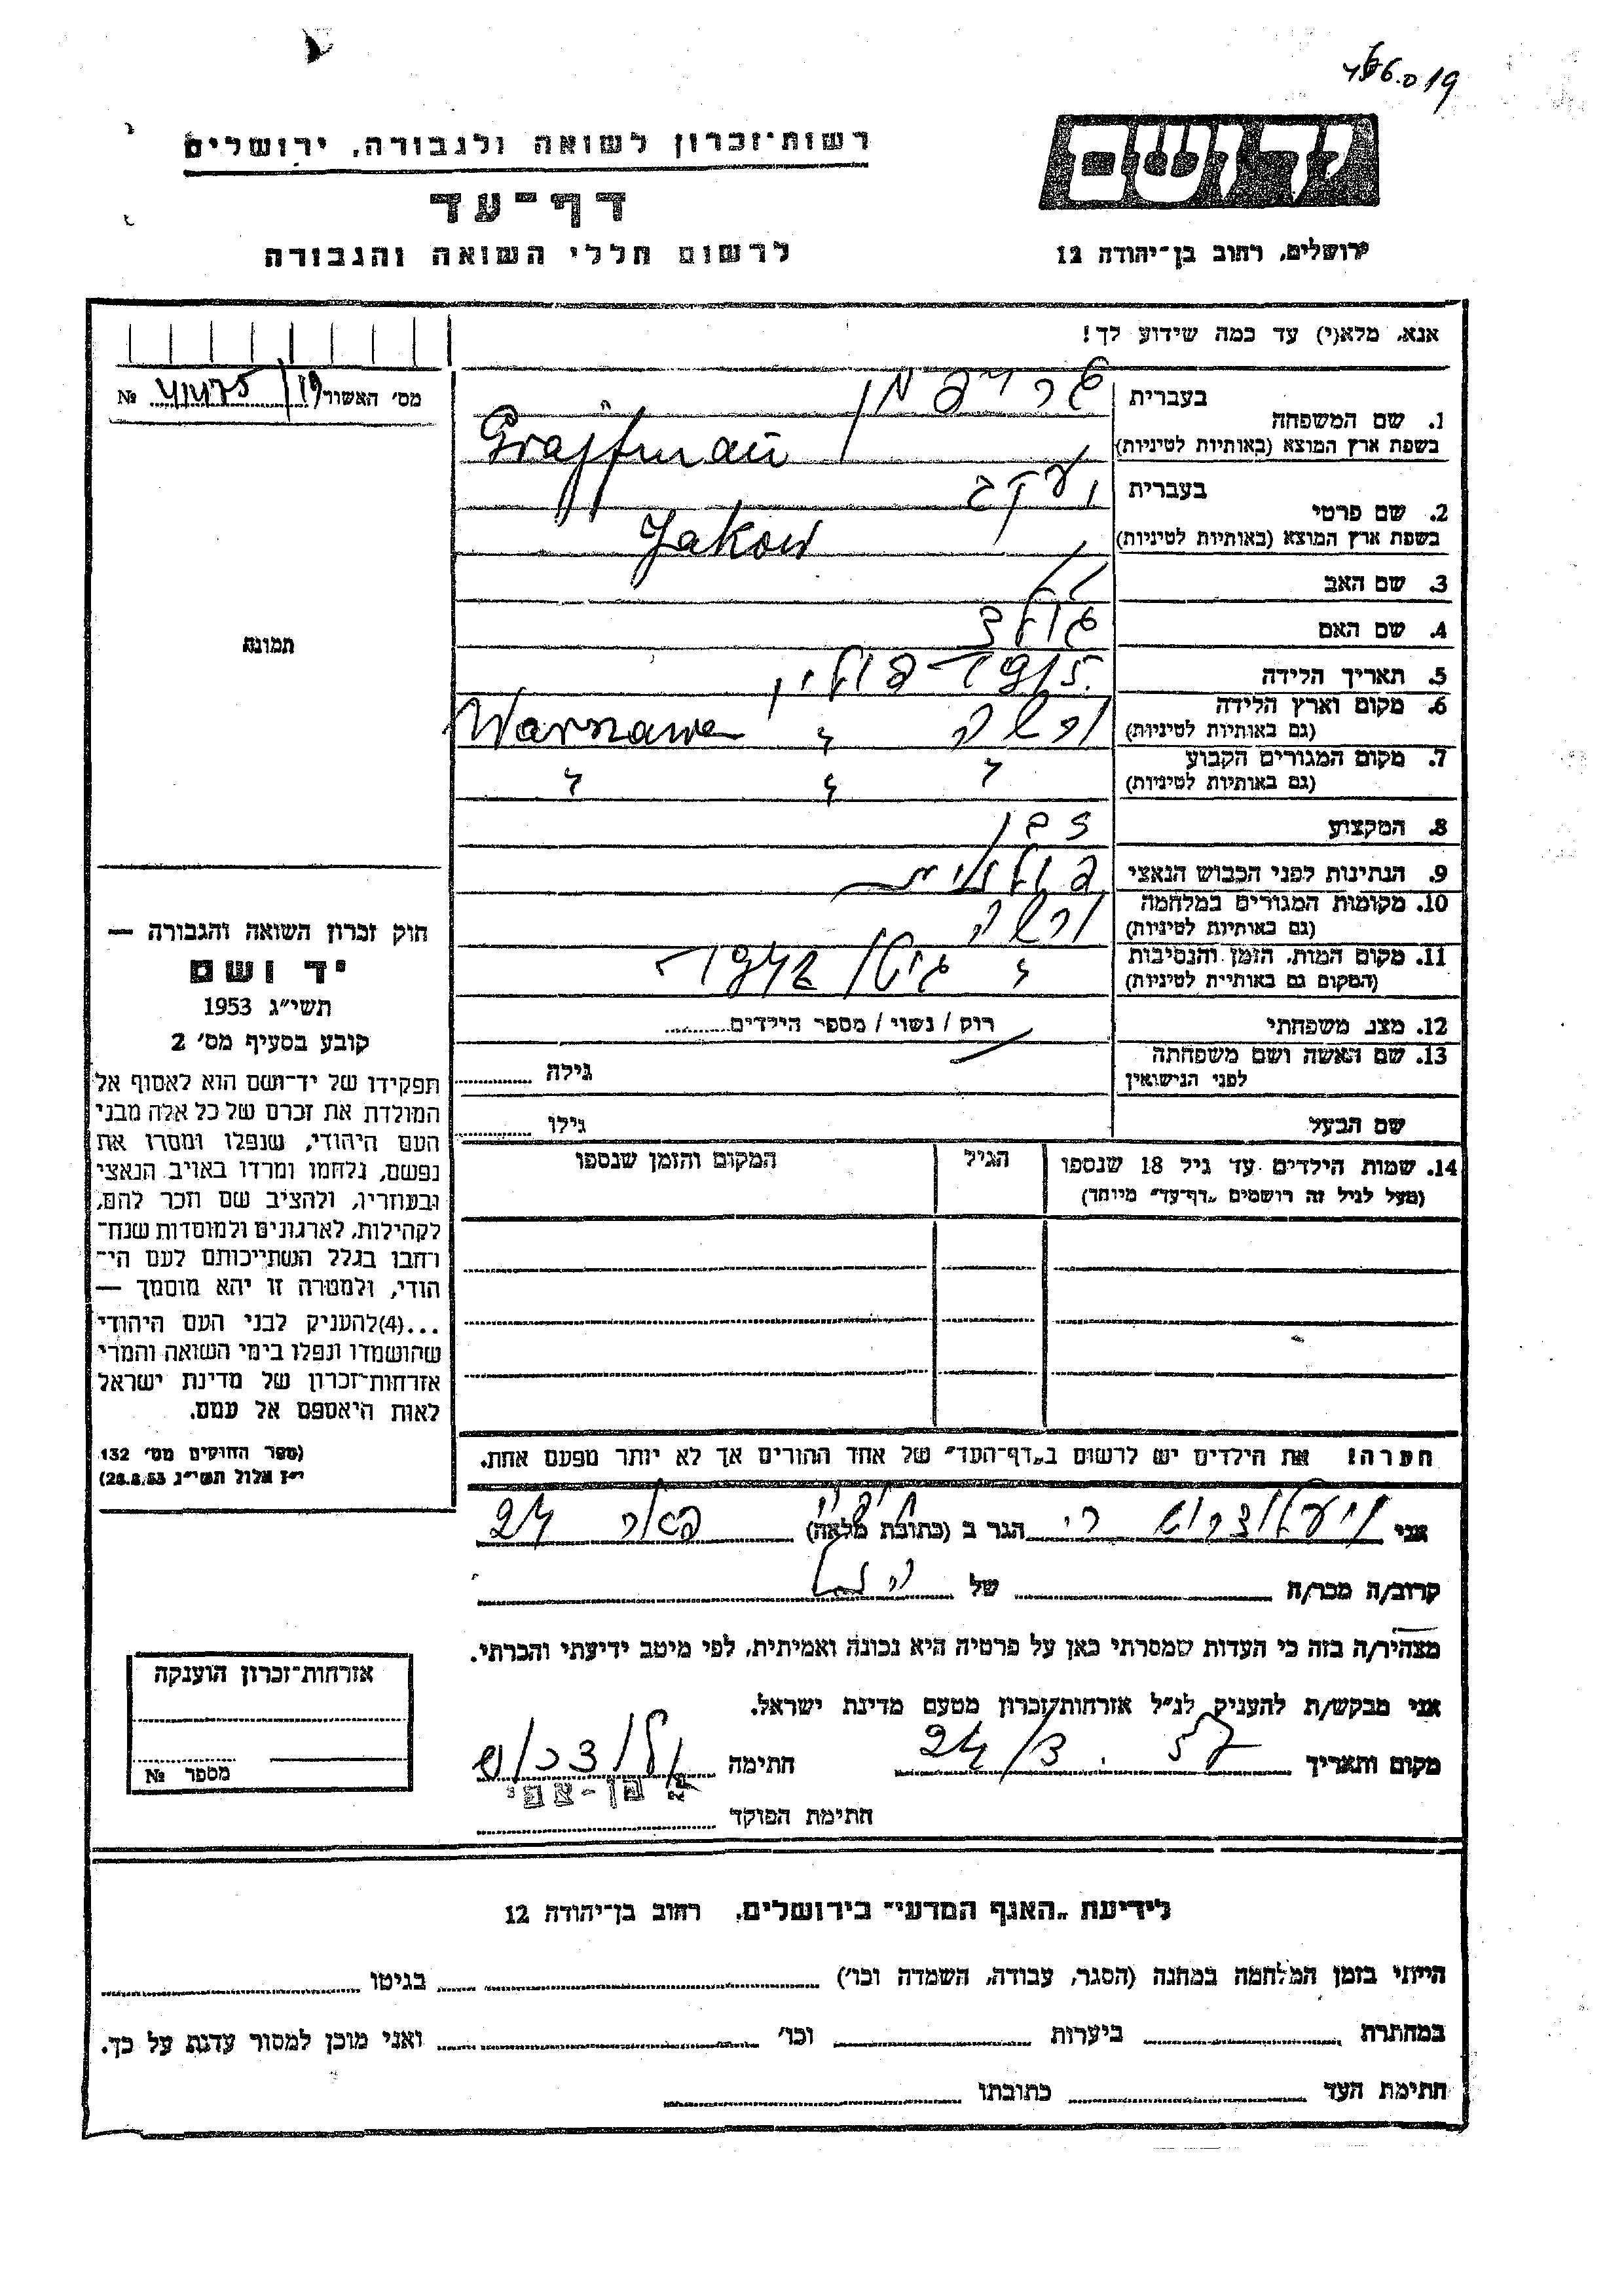 רשות־זכרון לשואה ולגבורה, ירושלים
דף־עד
לרשום חללי השואה והגבורה
ידושם
ירושלים, רחוב בן־יהודה 12
אנא, מלא(י) עד כמה שידוע לך!
מס׳ האשור №
1. שם המשפחה
בעברית גרייפמן
בשפת ארץ המוצא (באותיות לטיניות) Grajfman
2. שם פרטי
בעברית יעקב
בשפת ארץ המוצא (באותיות לטיניות) Jakow
3. שם האב
4. שם האם
5. תאריך הלידה
6. מקום וארץ הלידה
(גם באותיות לטיניות) ורשה " Warszawa
7. מקום המגורים הקבוע
(גם באותיות לטיניות) " " "
8. המקצוע
9. הנתינות לפני הכבוש הנאצי פולנית
10. מקומות המגורים במלחמה
(גם באותיות לטיניות) ורשה
11. מקום המות, הזמן והנסיבות
(המקום גם באותיות לטיניות) " גיטו 1942
12. מצב משפחתי רוק / נשוי / מספר הילדים
13. שם האשה ושם משפחתה
לפני הנישואין גילה
שם הבעל גילו
14. שמות הילדים עד גיל 18 שנספו הגיל המקום והזמן שנספו
(מעל לגיל זה רושמים „דף־עד״ מיוחד)
הערה! את הילדים יש לרשום ב„דף־העד״ של אחד ההורים אך לא יותר מפעם אחת.
תמונה
חוק זכרון השואה והגבורה —
יד ושם
תשי״ג 1953
קובע בסעיף מס׳ 2
תפקידו של יד־ושם הוא לאסוף אל
המולדת את זכרם של כל אלה מבני
העם היהודי, שנפלו ומסרו את
נפשם, נלחמו ומרדו באויב הנאצי
ובעוזריו, ולהציב שם וזכר להם,
לקהילות, לארגונים ולמוסדות שנח־
רחבו בגלל השתייכותם לעם הי־
הודי, ולמטרה זו יהא מוסמך —
...(4)להעניק לבני העם היהודי
שהושמדו ונפלו בימי השואה והמרי
אזרחות־זכרון של מדינת ישראל
לאות היאספם אל עמם.
(ספר החוקים מס׳ 132
י״ז אלול תשי״ג 28.8.53)
אני הגר ב (כתובת מלאה) 24
קרוב/ה מכר/ה של
מצהיר/ה בזה כי העדות שמסרתי כאן על פרטיה היא נכונה ואמיתית, לפי מיטב ידיעתי והכרתי.
אני מבקש/ת להעניק לנ״ל אזרחות־זכרון מטעם מדינת ישראל.
מקום ותאריך 24/3. 57 חתימה
א. בן־צבי
חתימת הפוקד
אזרחות־זכרון הוענקה
מספר №
לידיעת „האגף המדעי״ בירושלים, רחוב בן־יהודה 12
הייתי בזמן המלחמה במחנה (הסגר, עבודה, השמדה וכו׳) בגיטו
במחתרת ביערות וכו׳ ואני מוכן למסור עדות על כך.
חתימת העד כתובתו